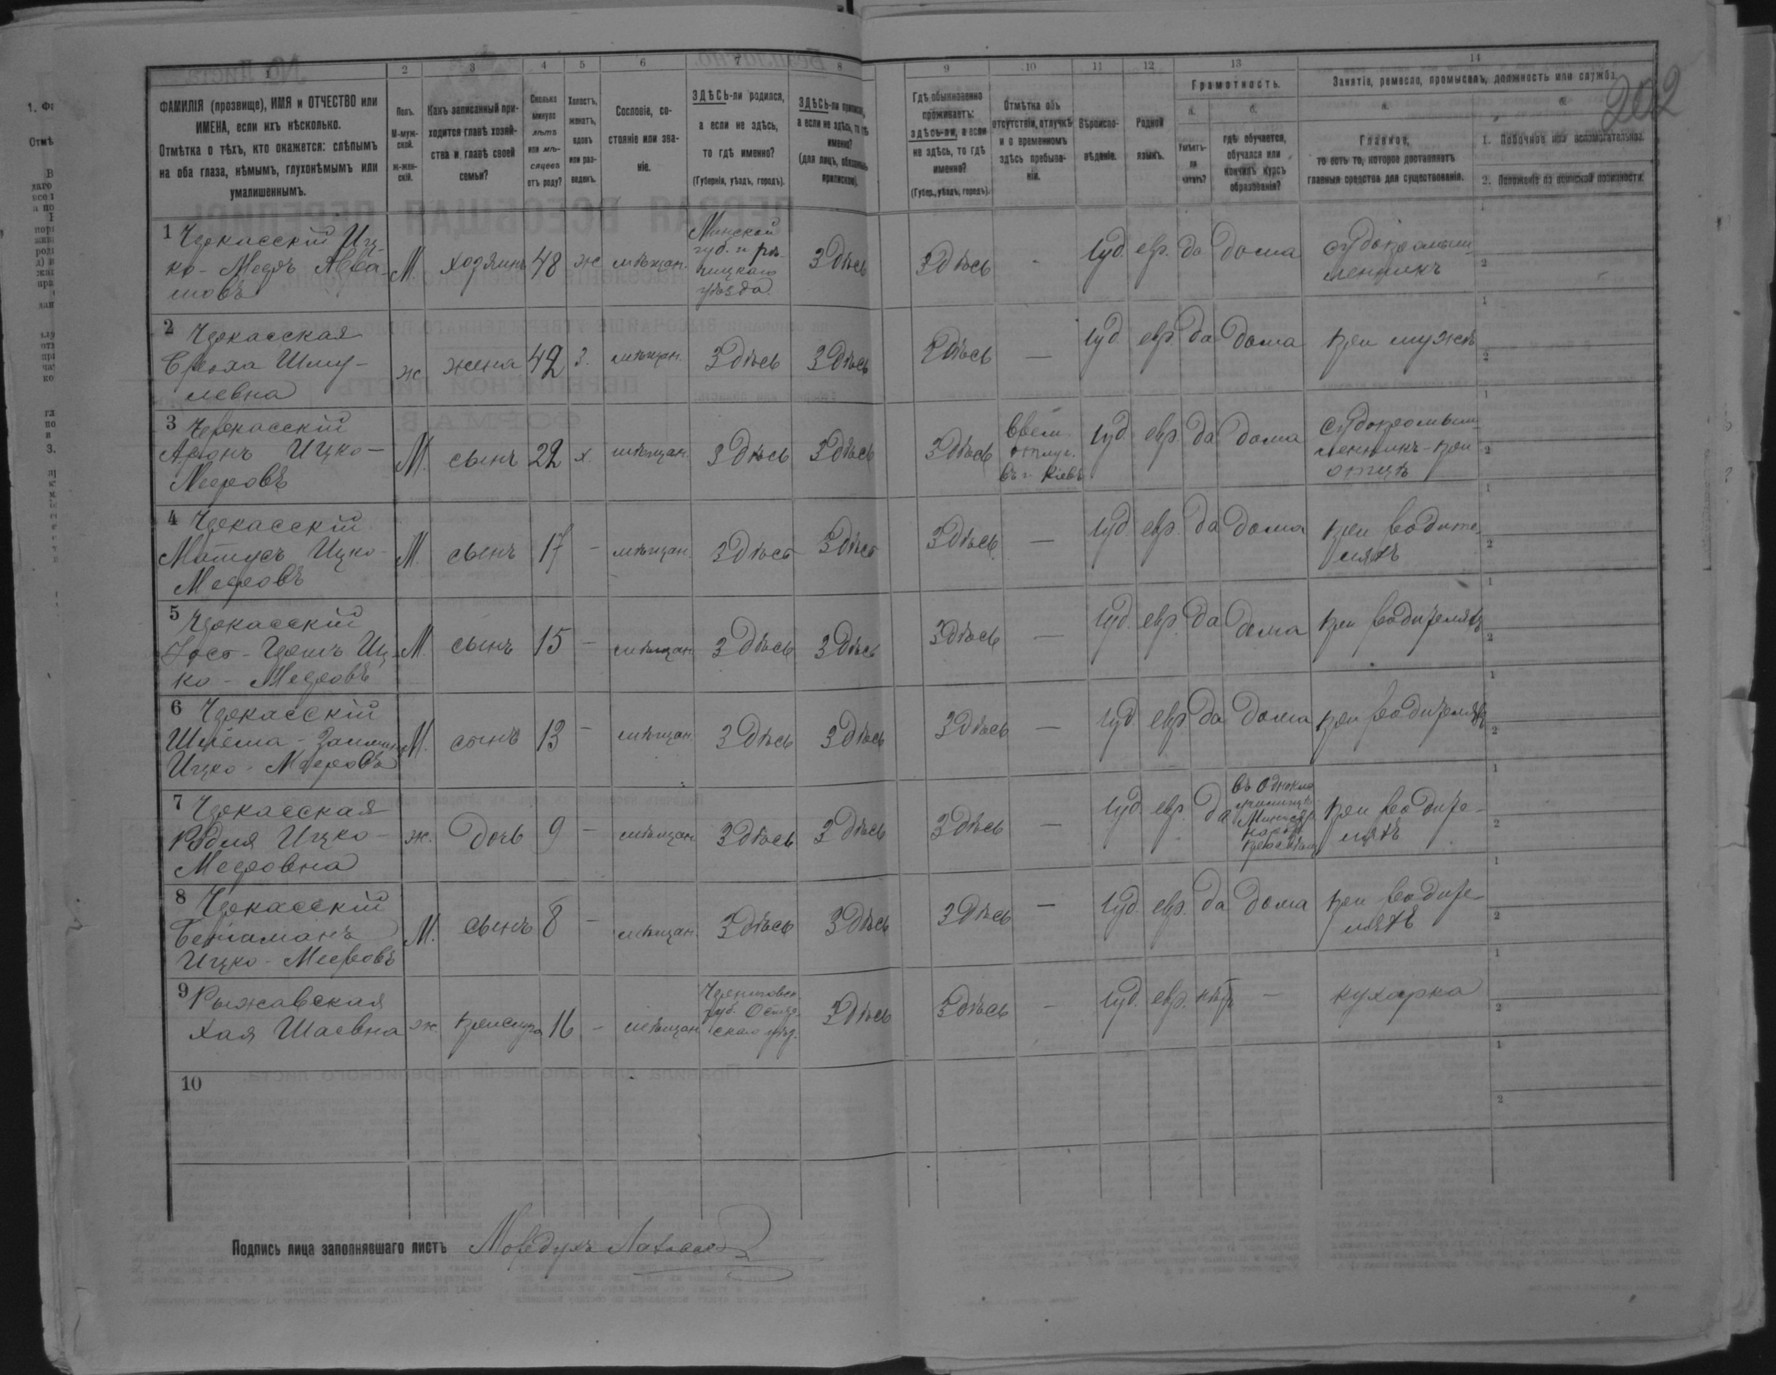 202
1 2 3 4 5 6 7 8 9 10 11 12 13 14
ФАМИЛІЯ (прозвище), ИМЯ и ОТЧЕСТВО или
ИМЕНА, если ихъ нѣсколько.
Отмѣтка о тѣхъ, кто окажется: слѣпымъ
на оба глаза, нѣмымъ, глухонѣмымъ или
умалишеннымъ.
Полъ.
М-муж-
ской.
ж-жен-
скій.
Какъ записанный при-
ходится главѣ хозяй-
ства и главѣ своей
семьи?
Сколько
минуло
лѣтъ
или мѣ-
сяцевъ
отъ роду?
Холостъ,
женатъ,
вдовъ
или раз-
веденъ.
Сословіе, со-
стояніе или зва-
ніе.
ЗДѢСЬ-ли родился,
а если не здѣсь,
то гдѣ именно?
(Губернія, уѣздъ, городъ).
ЗДѢСЬ-ли приписанъ,
а если не здѣсь, то гдѣ
именно?
(для лицъ, обязанныхъ
припискою).
Гдѣ обыкновенно
проживаетъ:
здѣсь-ли, а если
не здѣсь, то гдѣ
именно?
(Губер., уѣздъ, городъ).
Отмѣтка объ
отсутствіи, отлучкѣ
и о временномъ
здѣсь пребыва-
ніи.
Вѣроиспо-
вѣданіе.
Родной
языкъ.
Грамотность.
а.
Умѣетъ-
ли
читать?
б.
гдѣ обучается,
обучался или
кончилъ курсъ
образованія?
Занятіе, ремесло, промыселъ, должность или служба.
а.
Главное,
то есть то, которое доставляетъ
главныя средства для существованія.
б.
1. Побочное или вспомогательное.
2. Положеніе по воинской повинности.
1 Черкасскій Иц-
ко-Мееръ
М. хозяинъ 48 ж мѣщан.
Минской
губ. и рѣ-
чицкаго
уѣзда
Здѣсь Здѣсь - Іуд. евр. да дома
судопромыш-
ленникъ
2 Черкасская
Шму-
левна
ж. жена 42 з. мѣщан. Здѣсь Здѣсь Здѣсь — Іуд евр. да дома при мужѣ
3 Черкасскій
Аронъ Ицко-
Мееровъ
М. сынъ 22 х. мѣщан. Здѣсь Здѣсь Здѣсь
врем.
отлуч.
въ г. Кіевъ
Іуд евр. да дома
судопромыш-
ленникъ при
отцѣ
4 Черкасскій
Матусъ Ицко-
Мееровъ
М. сынъ 17 - мѣщан. Здѣсь Здѣсь Здѣсь — Іуд евр. да дома
при родите-
ляхъ
5 Черкасскій
Иц-
ко-Мееровъ
М. сынъ 15 - мѣщан. Здѣсь Здѣсь Здѣсь — Іуд. евр. да дома при родителяхъ
6 Черкасскій
Ицко-Мееровъ
М. сынъ 13 - мѣщан. Здѣсь Здѣсь Здѣсь — Іуд евр да дома при родителяхъ
7 Черкасская
Ицко-
Мееровна
ж. дочь 9 - мѣщан. Здѣсь Здѣсь Здѣсь — Іуд евр. да
при родите-
ляхъ
8 Черкасскій
Беніаманъ
Ицко-Мееровъ
М. сынъ 8 - мѣщан. Здѣсь Здѣсь Здѣсь — Іуд евр. да дома
при родите-
ляхъ
9 Рыжавская
Хая Шаевна
ж. прислуга 16 - мѣщан.
губ.
Здѣсь Здѣсь - Іуд. евр. нѣтъ — кухарка
10
Подпись лица заполнявшаго листъ